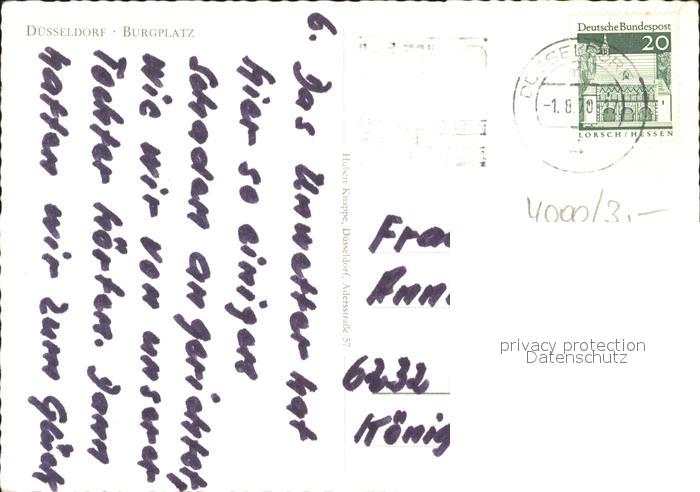 DÜSSELDORF · BURGPLATZ
6. Das Unwetter hat
hier so einigen
Schaden angerichtet,
wie wir von unserer
Tochter hörten. Dann
hatten wir zum Glück
Hubert Knappe, Düsseldorf, Adersstraße 57
Deutsche Bundespost
20
LORSCH/HESSEN
DÜSSELDORF
-1.8.70
4000/3,—
Frau
Anne
6232
König
privacy protection
Datenschutz